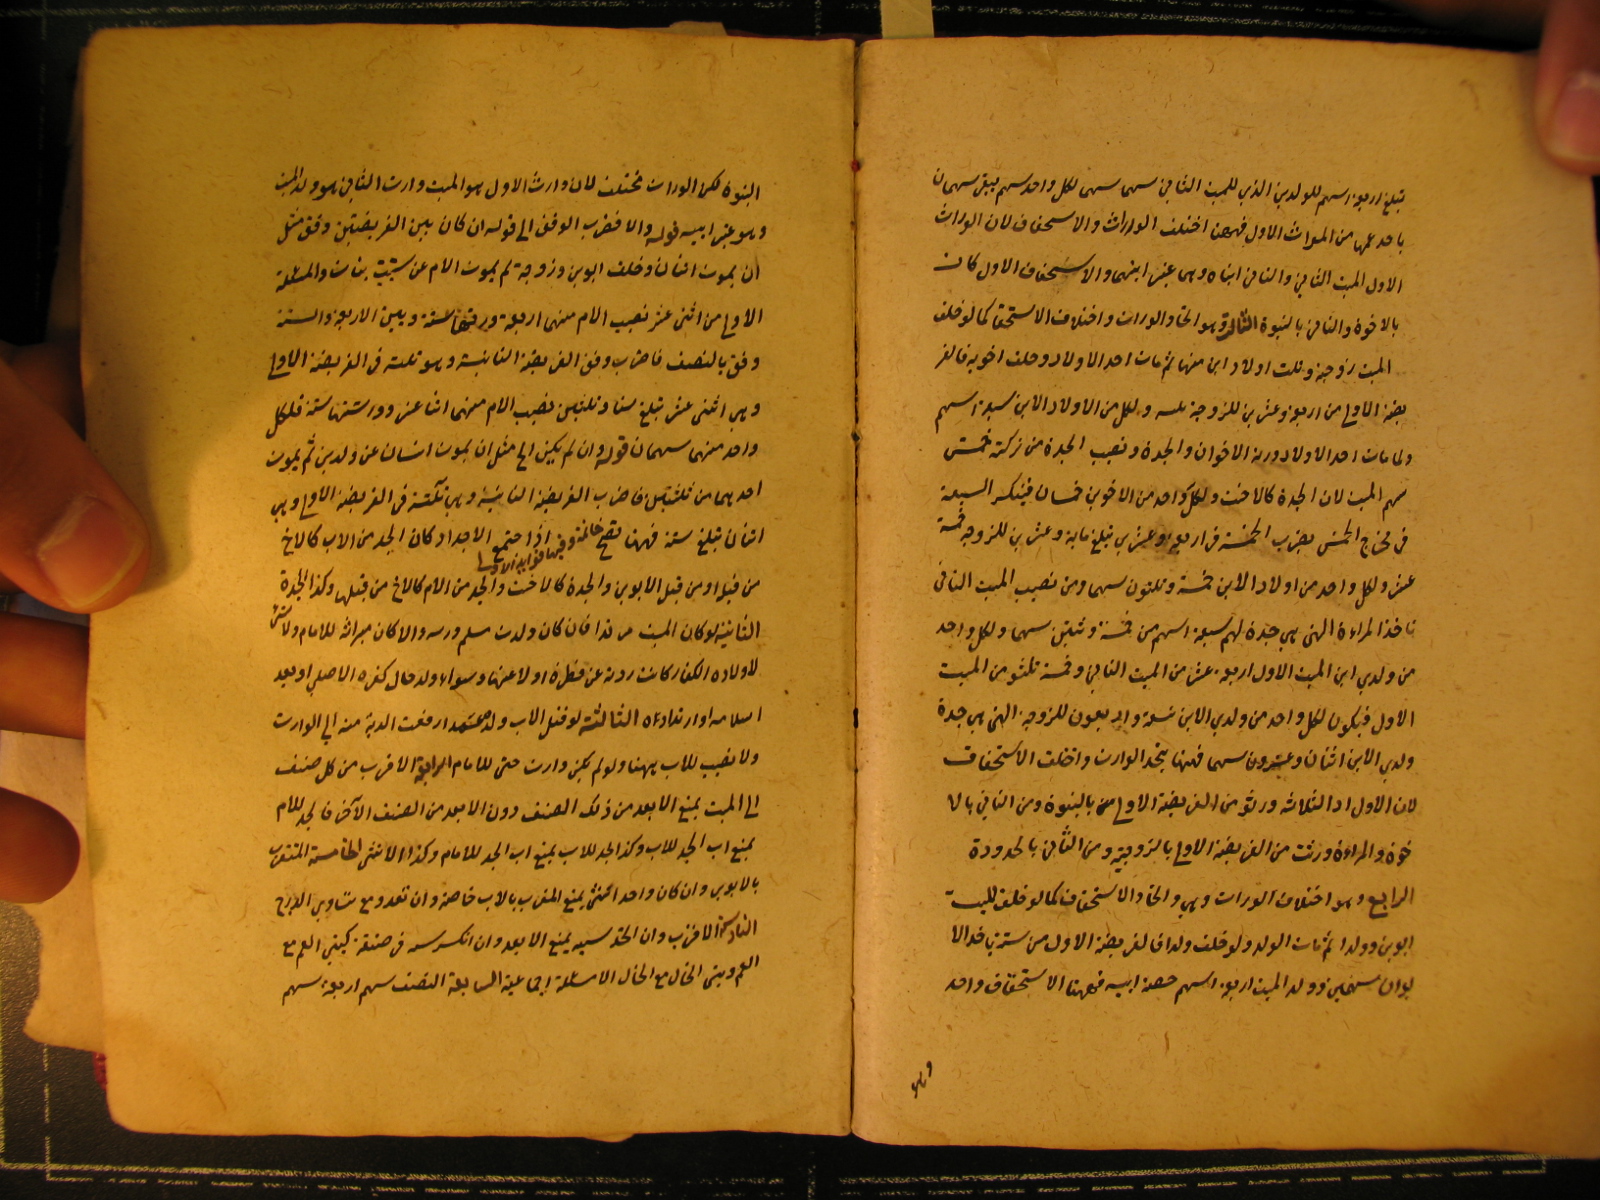 تبلغ اربعة اسهم للولدين الذين للميت الثاني سهما سهما لكل واحد سهم يبقى سهمان
ياخذ عمها من الميراث الاول فههنا اختلف الوارث والاستحقاق لان الوارث
الاول الميت الثاني والثاني ابناه وهما غير ابنهما والاستحقاق الاول كان
بالاخوة والثاني بالبنوة الثالث وهو اتحاد الوارث واختلاف الاستحقاق كما لو خلف
الميت زوجة وثلث اولاد ابن منها ثم مات احد الاولاد وخلف اخويه فالفر
يضة الاولى من اربعة وعشرين للزوجة ثلثه ولكل من الاولاد الابن سبعة اسهم
ولما مات احد الاولاد ورثه الاخوان والجدة ونصيب الجدة من تركته خمس
سهم الميت لان الجدة كالاخت ولكل واحد من الاخوين خمسان فينكسر السبعة
في مخرج الخمس يضرب الخمسة في اربعة وعشرين تبلغ ماية وعشرين للزوجة خمسة
عشر ولكل واحد من اولاد الابن خمسة وثلثون سهما ومن نصيب الميت الثاني
تاخذ المراءة التي هي جدة لهم سبعة اسهم من خمسة وثلثين سهما ولكل واحد
من ولدي ابن الميت الاول اربعة عشر من الميت الثاني وخمسة ثلثون من الميت
الاول فيكون لكل واحد من ولدي الابن تسعة واربعون للزوجة التي هي جدة
ولدي الابن اثنان وعشرون سهما فههنا يتحد الوارث واختلف الاستحقاق
لان الاولاد الثلاثه ورثوا من الفريضة الاولى بالبنوة ومن الثاني بالا
خوة والمراءة ورثت من الفريضة الاولى بالزوجية ومن الثاني بالجدودة
الرابع وهو اختلاف الوارث وهي واتحاد الاستحقاق كما لو خلف الميت
ابوين وولدا ثم مات الولد ولو خلف ولدا فالفريضة الاول من ستة ياخذ الا
بوان سهمين وولد الميت اربعة اسهم حصة ابيه فههنا الاستحقاق واحد
وهو
البنوة لكن الوارث مختلف لان وارث الاول هو الميت وارث الثاني هو ولد الميت
وهو غير ابيه قوله والا فضرب الوفق الى قوله ان كان بين الفريضتين وفق مثل
ان يموت انسان وخلف ابوين وزوجة ثم يموت الام عن ست بنات والمسئلة
الاولى من اثنى عشر نصيب الام منهما اربعة ورثتها ستة وبين الاربعة والستة
وفق بالنصف فاضرب وفق الفريضة الثانية وهو ثلثة في الفريضة الاولى
وهي اثنى عشر تبلغ ستا وثلثين نصيب الام منهما اثنا عشر وورثتها ستة فلكل
واحد منهما سهمان قوله وان لم يكن الى مثل ان يموت انسان عن ولدين ثم يموت
احدهما عن ثلثة فاضرب الفريضة الثانية وهي ثلثة في الفريضة الاولى وهي
اثنان تبلغ ستة فههنا تصح خاتمة وفيها فوايد الاولى اذا اجتمع الاجداد كان الجد من الاب كالاخ
من قبله او من قبل الابوين والجدة كالاخت والجد من الام كالاخ من قبلها وكذا الجدة
الثانية لو كان الميت مرتدا فان كان ولدت مسلم ورثه والا كان ميراثه للامام ولا شئ
لاولاده الكفار كانت ردته عن فطرة او لا عنها وسواء ولد حال كفره الاصلي او بعد
اسلامه او ارتداده الثالثة لو قتل الاب ولده متعمدا رفعت الدية منه الى الوارث
ولا نصيب للاب ههنا ولو لم يكن وارث حتى للامام الرابعة الاقرب من كل صنف
الى الميت يمنع الابعد من ذلك الصنف دون الابعد من الصنف الآخر فالجد للام
يمنع اب الجد للاب وكذا الجد للاب يمنع اب الجد للامام وكذا الانثى الخامسة المتقرب
بالابوين وان كان واحدا انثى يمنع المتقرب بالاب خاصة وان تعدد مع تساوي الدرج
السادسة الاقرب وان اتحد سببه يمنع الابعد وان انكر سببه في صنفه كبني العم مع
العم وبني الخال مع الخال الا مسئلة اجماعية السابعة النصف سهم اربعة سهم